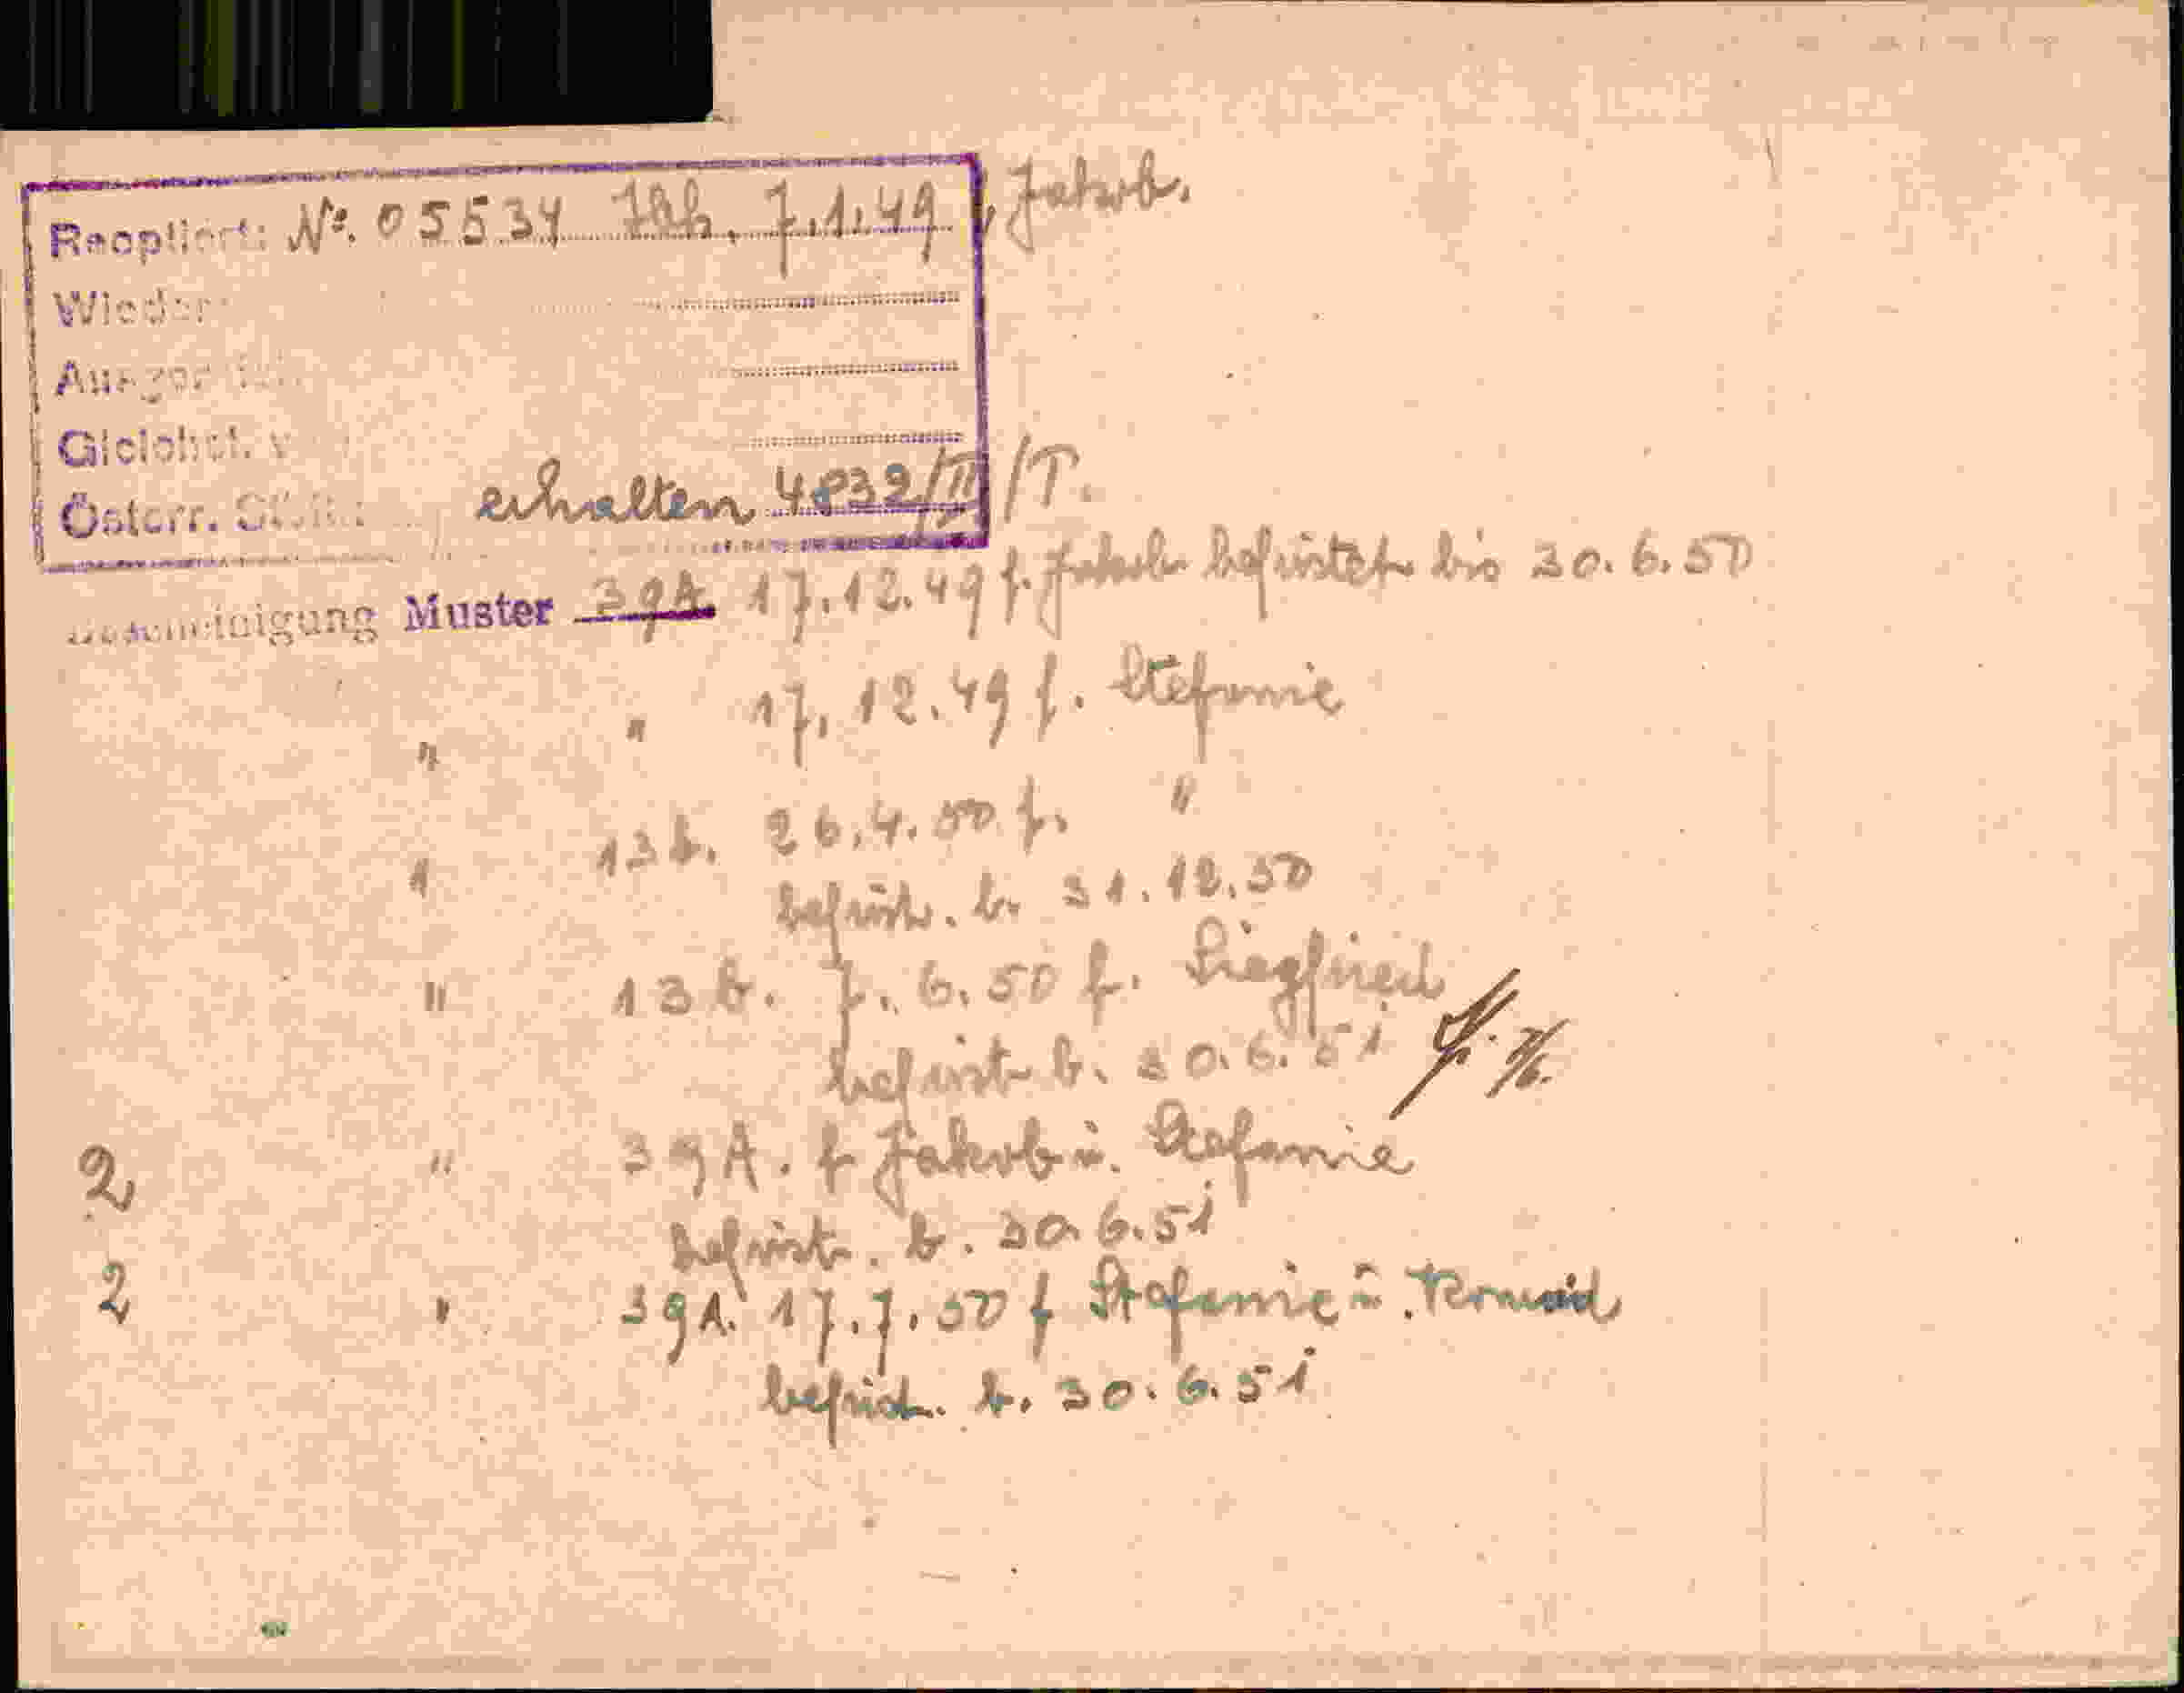 Reoptiert: No. 05534 7.1.49 f. Jakob.
Wieder
Ausge
Gleichst. v
Österr. erhalten 4832/II/T.
Bescheinigung Muster 39A 17.12.49 f. Jakob befristet bis 30.6.50
" " 17.12.49 f. Stefanie
" 13b. 26.4.50 f. "
befrist. b. 31.12.50
" 13b. 7.6.50 f. Siegfried
befrist b. 30.6.51
2 " 39A. f Jakob u. Stefanie
befrist. b. 30.6.51
2 " 39A. 17.7.50 f Stefanie u.
befrist. b. 30.6.51